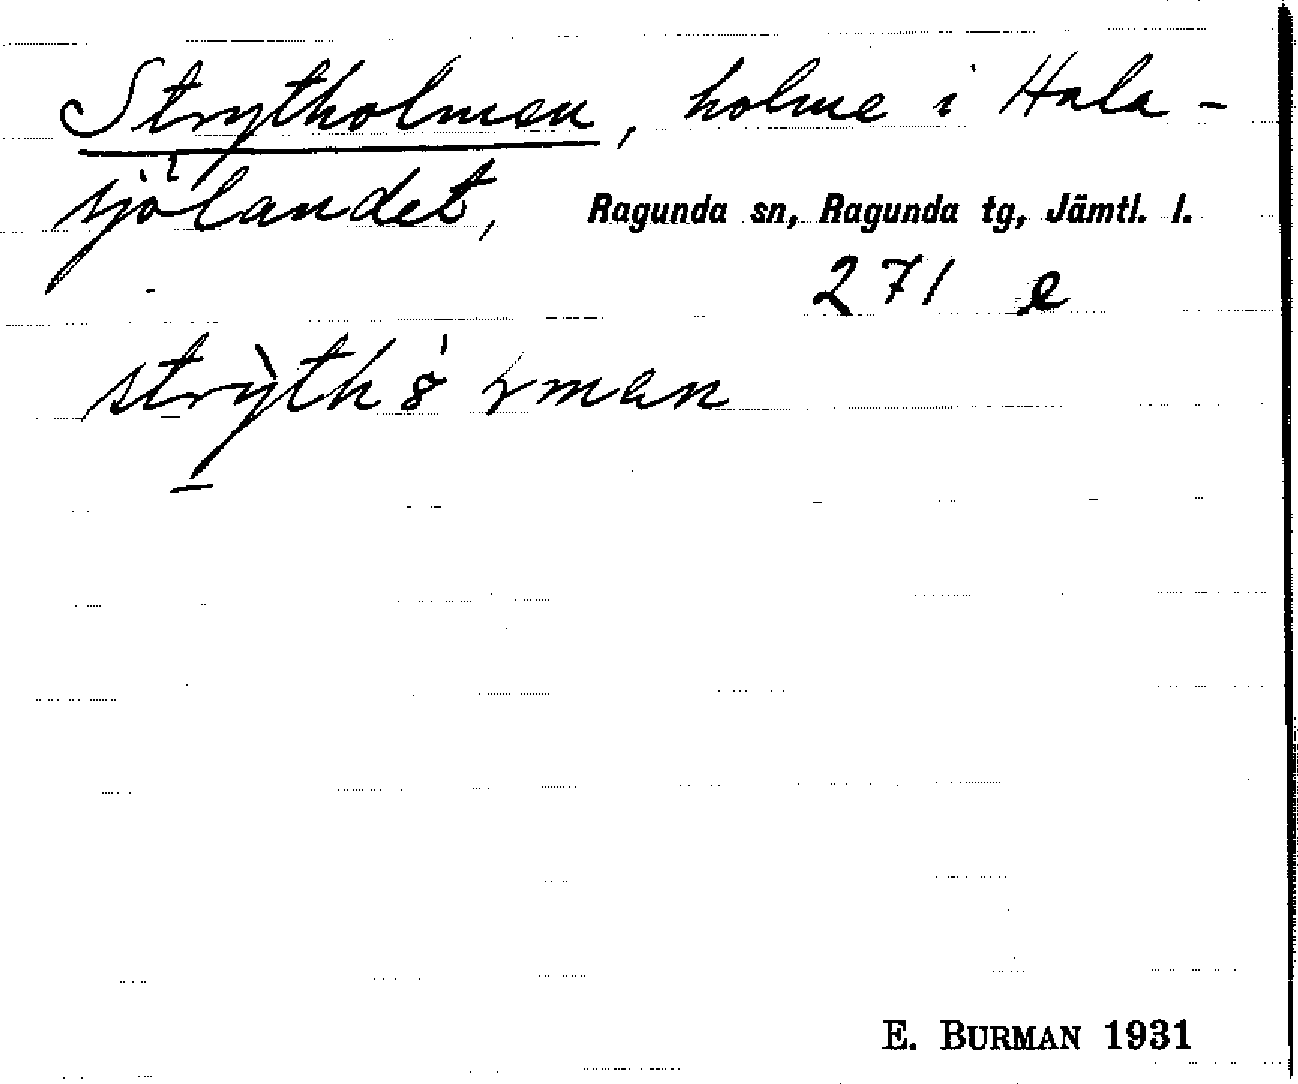 Strytholmen, holme i Hala-
sjölandet, Ragunda sn, Ragunda tg, Jämtl. l.
271 e
E. BURMAN 1931